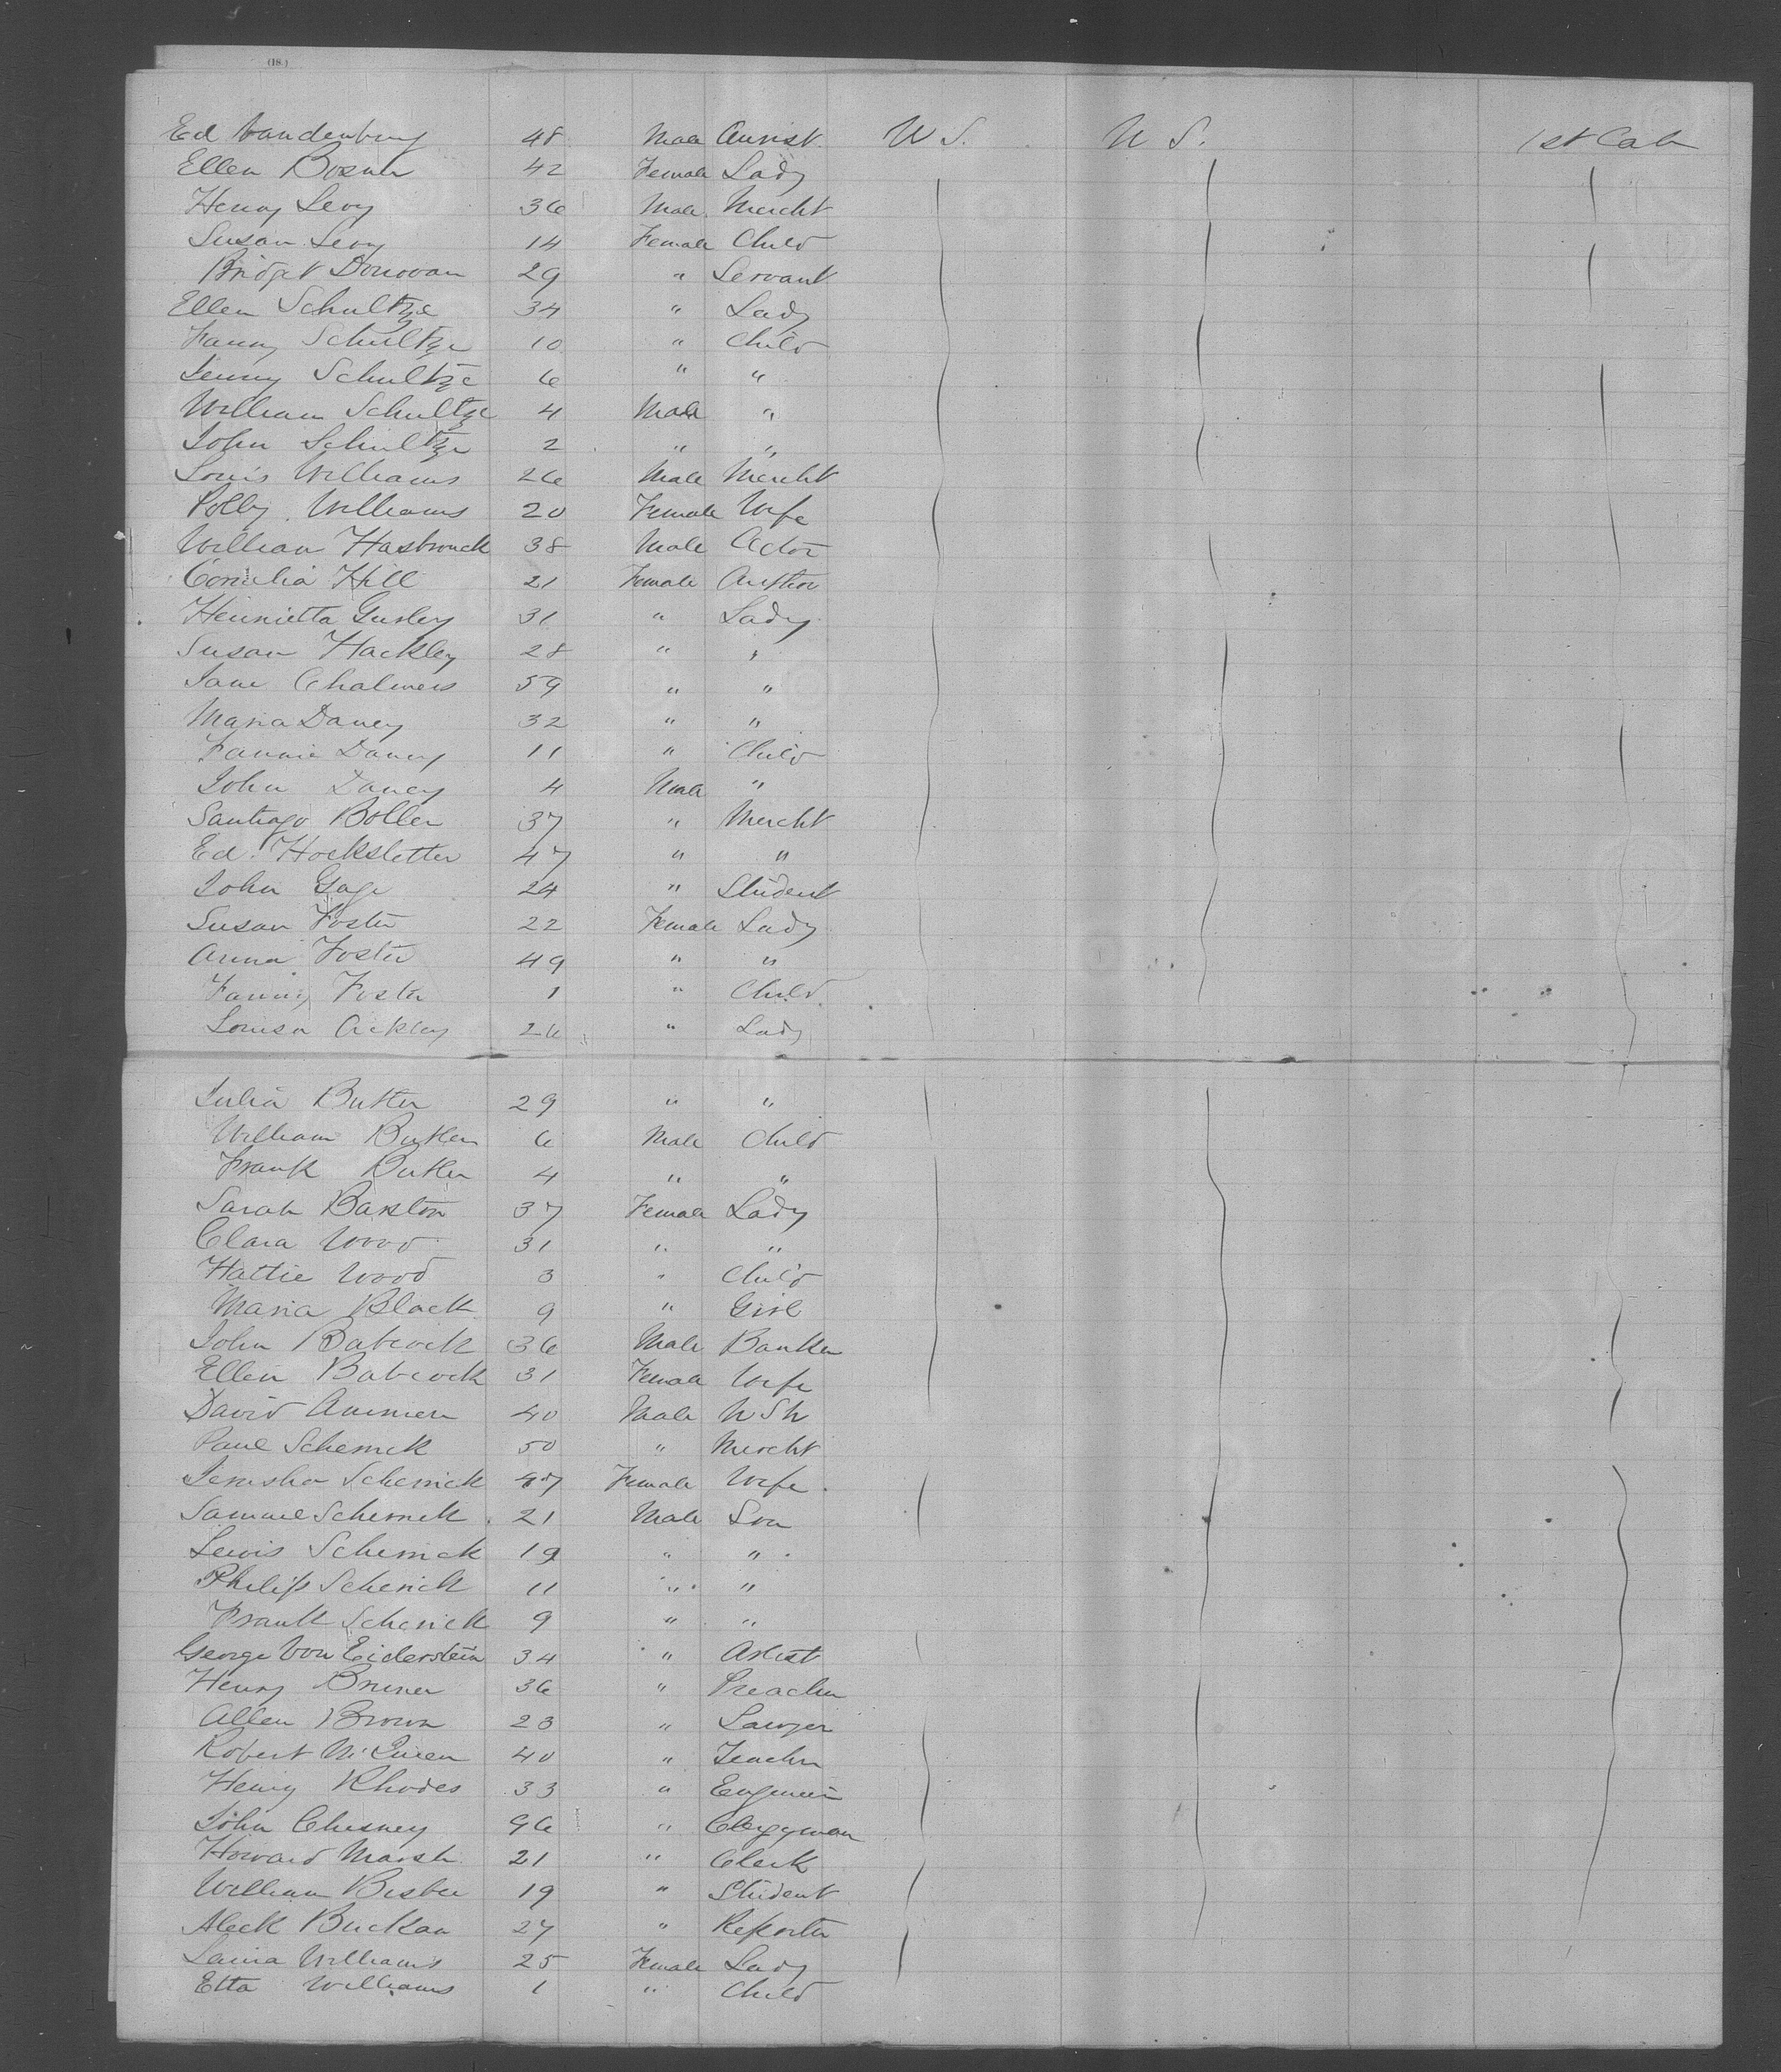 (18.)
Ed Vandenburg 48 Male Aurist U S. U S. 1st Cab
Ellen Bosnar 42 Female Lady
Henry Levy 36 Male Mercht
Susan Levy 14 Female Child
Bridget Donovan 29 " Servant
Ellen Schultze 34 " Lady
Fanny Schultze 10 " Child
Jenny Schultze 6 " "
William Schultze 4 Male "
John Schultze 2 " "
Louis Williams 26 Male Mercht
Polly Williams 20 Female Wife
William Hasbrouck 38 Male Actor
Cornelia Hill 21 Female Author
Henrietta Gurley 31 " Lady
Susan Hackley 28 " "
Jane Chalmers 59 " "
Maria Dancy 32 " "
Fannie Dancy 11 " Child
John Dancy 4 Male "
Santiago Boller 37 " Mercht
Ed. Hockstetter 47 " "
John Gage 24 " Student
Susan Foster 22 Female Lady
Anna Foster 49 " "
Fanny Foster 1 " Child
Louisa Ackley 26 " Lady
Julia Butler 29 " "
William Butler 6 Male Child
Frank Butler 4 " "
Sarah Barston 37 Female Lady
Clara Wood 31 " "
Hattie Wood 3 " Child
Maria Black 9 " Girl
John Babcock 36 Male Banker
Ellen Babcock 31 Female Wife
David Ammen 40 Male U S N
Paul Schenick 50 " Mercht
Jerusha Schenick 47 Female Wife
Samuel Schenick 21 Male Son
Lewis Schenick 19 " "
Philip Schenick 11 " "
Frank Schenick 9 " "
George Von Eiderstein 34 " Artist
Henry Bruner 36 " Preacher
Allen Brown 23 " Lawyer
Robert McQueen 40 " Teacher
Henry Rhodes 33 " Engineer
John Chesney 96 " Clergyman
Howard Marsh 21 " Clerk
William Bisbee 19 " Student
Aleck Buckan 27 " Reporter
Laura Williams 25 Female Lady
Etta Williams 1 " Child